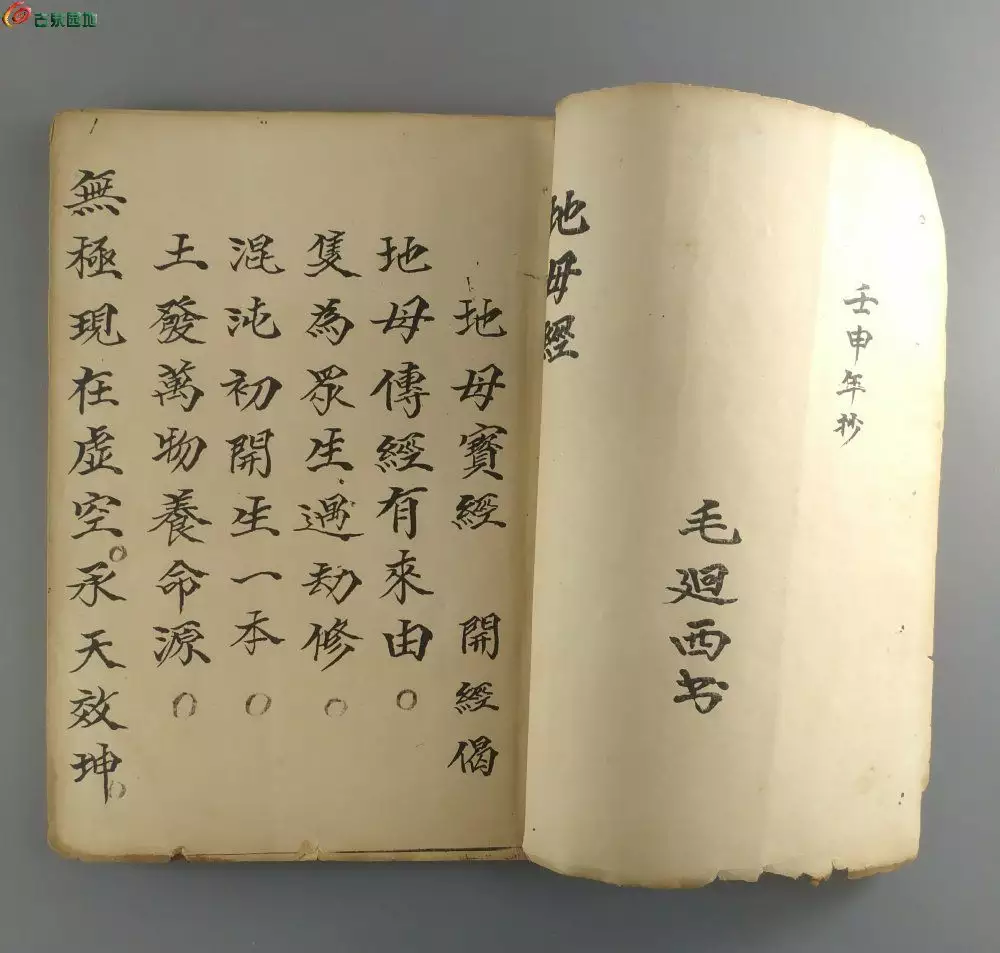 古泉园地
壬申年抄
毛廻西书
地母經
地母寶經 開經偈
地母傳經有來由○
隻為眾生遇劫修○
混沌初開生一本○
土發萬物養命源○
無極現在虛空○承天效坤○